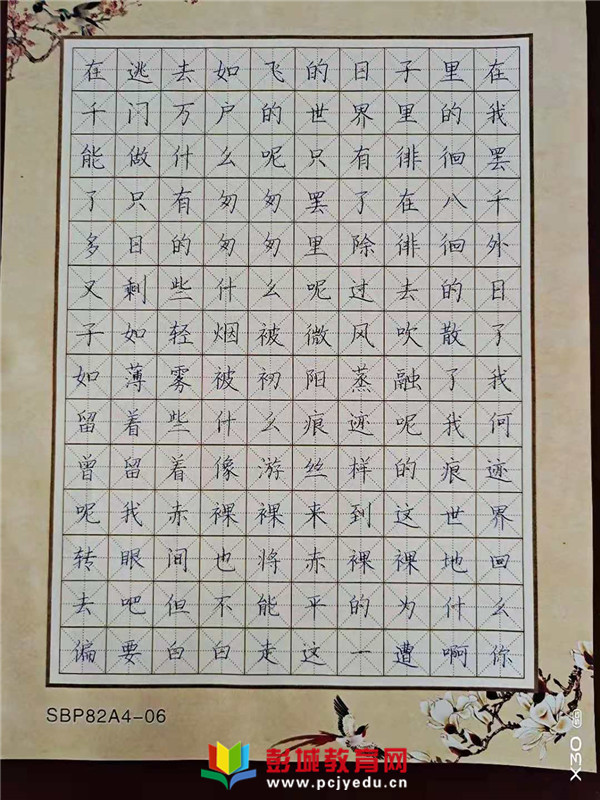 在逃去如飞的日子里在
千门万户的世界里的我
能做什么呢只有徘徊罢
了只有匆匆罢了在八千
多日的匆匆里除徘徊外
又剩些什么呢过去的日
子如轻烟被微风吹散了
如薄雾被初阳蒸融了我
留着些什么痕迹呢我何
曾留着像游丝样的痕迹
呢我赤裸裸来到这世界
转眼间也将赤裸裸地回
去吧但不能平的为什么
偏要白白走这一遭啊你
SBP82A4-06
彭城教育网
www.pcjyedu.cn
X30